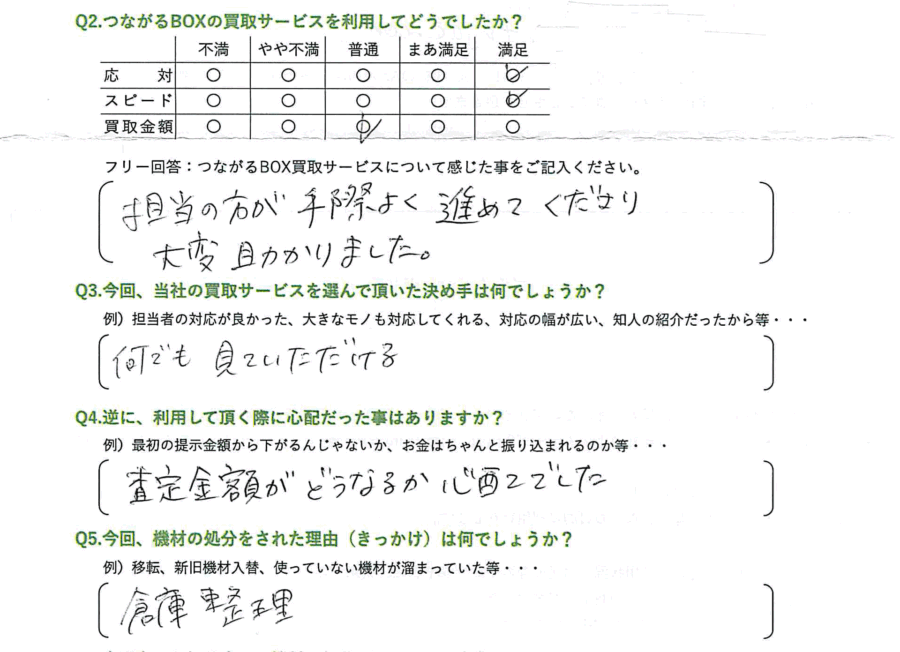 Q2.つながるBOXの買取サービスを利用してどうでしたか？
不満 やや不満 普通 まあ満足 満足
応 対 ○ ○ ○ ○ ○
スピード ○ ○ ○ ○ ○
買取金額 ○ ○ ○ ○ ○
フリー回答：つながるBOX買取サービスについて感じた事をご記入ください。
担当の方が手際よく進めてくださり
大変助かりました。
Q3.今回、当社の買取サービスを選んで頂いた決め手は何でしょうか？
例）担当者の対応が良かった、大きなモノも対応してくれる、対応の幅が広い、知人の紹介だったから等・・・
何でも見ていただける
Q4.逆に、利用して頂く際に心配だった事はありますか？
例）最初の提示金額から下がるんじゃないか、お金はちゃんと振り込まれるのか等・・・
査定金額がどうなるか心配でした
Q5.今回、機材の処分をされた理由（きっかけ）は何でしょうか？
例）移転、新旧機材入替、使っていない機材が溜まっていた等・・・
倉庫整理